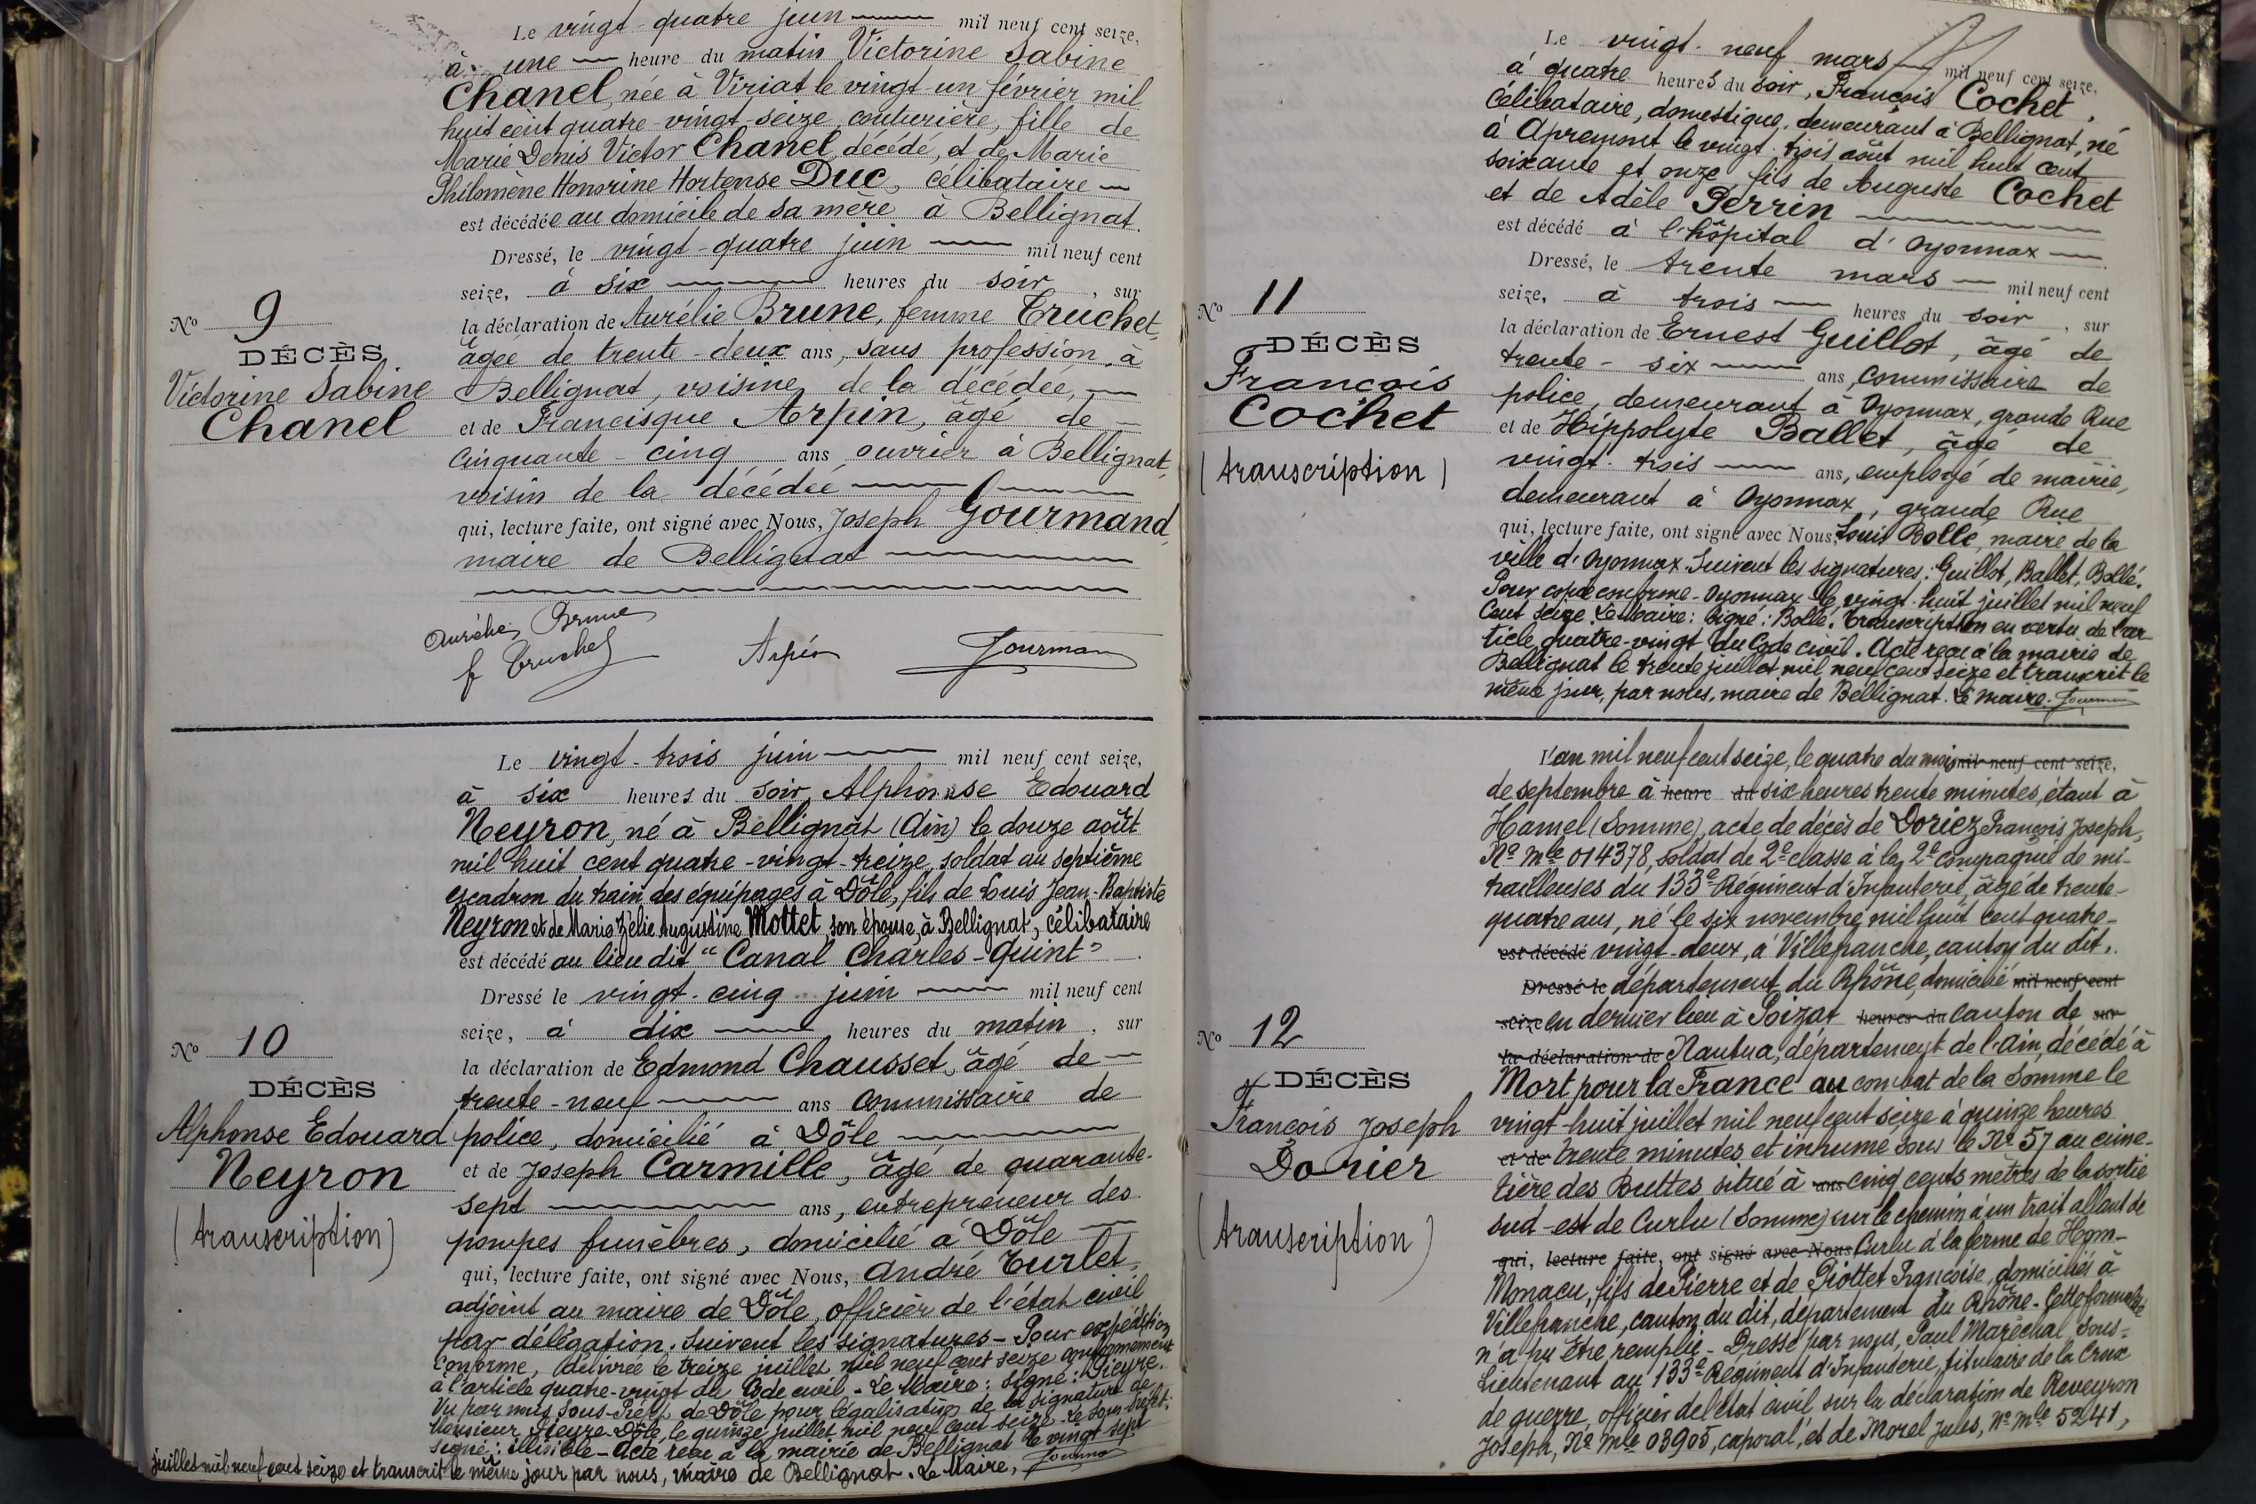 Le vingt-quatre juin mil neuf cent seize,
à une heure du matin Victorine Sabine
Chanel, née à Viriat le vingt-un février mil
huit cent quatre-vingt-seize, couturière, fille de
Marie Denis Victor Chanel, décédé, et de Marie
Philomène Honorine Hortense Duc, célibataire
est décédée au domicile de sa mère à Bellignat.
Dressé, le vingt-quatre juin mil neuf cent
seize, à six heures du soir, sur
la déclaration de Aurélie Brune, femme Truchet,
âgée de trente-deux ans, sans profession, à
Bellignat, voisine de la décédée,
et de Francisque Arpin, âgé de
cinquante-cinq ans, ouvrier à Bellignat,
voisin de la décédée
qui, lecture faite, ont signé avec Nous, Joseph Gourmand,
maire de Bellignat
Aurélie Brune
f Truchet
Arpin
Gourman
No 9
DÉCÈS
Victorine Sabine
Chanel
Le vingt-trois juin mil neuf cent seize,
à six heures du soir, Alphonse Edouard
Neyron, né à Bellignat (Ain) le douze août
mil huit cent quatre-vingt-treize, soldat au septième
escadron du train des équipages à Dôle, fils de Louis Jean-Baptiste
Neyron et de Marie Zélie Augustine Mottet, son épouse, à Bellignat, célibataire
est décédé au lieu dit "Canal Charles-Quint"
Dressé le vingt-cinq juin mil neuf cent
seize, à dix heures du matin, sur
la déclaration de Edmond Chausset, âgé de
trente-neuf ans commissaire de
police, domicilié à Dôle
et de Joseph Carmille, âgé de quarante-
sept ans, entrepreneur des
pompes funèbres, domicilié à Dôle
qui, lecture faite, ont signé avec Nous, André Turlet,
adjoint au maire de Dôle, officier de l'état civil
par délégation. Suivent les signatures - Pour expédition
conforme, délivrée le treize juillet mil neuf cent seize conformément
à l'article quatre-vingt du Code civil - Le Maire: signé: Pieyre.
Vu par nous Sous-Préfet de Dôle pour légalisation de la signature de
Monsieur Pieyre - Dôle, le quinze juillet mil neuf cent seize - Le Sous-Préfet:
signé: illisible - Acte reçu à la mairie de Bellignat le vingt sept
juillet mil neuf cent seize et transcrit le même jour par nous, maire de Bellignat. Le Maire,
No 10
DÉCÈS
Alphonse Edouard
Neyron
(transcription)
Le vingt-neuf mars mil neuf cent seize,
à quatre heures du soir, François Cochet,
célibataire, domestique, demeurant à Bellignat, né
à Apremont le vingt-trois août mil huit cent
soixante et onze fils de Auguste Cochet
et de Adèle Perrin
est décédé à l'hôpital d'Oyonnax
Dressé, le trente mars mil neuf cent
seize, à trois heures du soir, sur
la déclaration de Ernest Guillot, âgé de
trente-six ans, commissaire de
police, demeurant à Oyonnax, grande Rue
et de Hippolyte Ballet, âgé de
vingt-trois ans, employé de mairie,
demeurant à Oyonnax, grande Rue
qui, lecture faite, ont signé avec Nous, Louis Bollé, maire de la
ville d'Oyonnax. Suivent les signatures: Guillot, Ballet, Bollé.
Pour copie conforme - Oyonnax le vingt-huit juillet mil neuf
cent seize. Le Maire: signé: Bollé. Transcription en vertu de l'ar-
ticle quatre-vingt du Code civil. Acte reçu à la mairie de
Bellignat le trente juillet mil neuf cent seize et transcrit le
même jour, par nous, maire de Bellignat. Le Maire.
No 11
DÉCÈS
François
Cochet
(transcription)
L'an mil neuf cent seize, le quatre du mois mil neuf cent seize,
de septembre à heure du six heures trente minutes, étant à
Hamel (Somme), acte de décès de Doriez François Joseph,
No Mle 014378, soldat de 2e classe à la 2e compagnie de mi-
trailleuses du 133e Régiment d'Infanterie, âgé de trente-
quatre ans, né le six novembre mil huit cent quatre-
est décédé vingt-deux, à Villefranche, canton du dit,
Dressé le département du Rhône, domicilié mil neuf cent
seize en dernier lieu à Poizat heures du canton de sur
la déclaration de Nantua, département de l'Ain, décédé à
Mort pour la France au combat de la Somme le
vingt-huit juillet mil neuf cent seize à quinze heures
et de trente minutes et inhumé sous le No 57 au cime-
tière des Buttes situé à ans cinq cents mètres de la sortie
sud-est de Curlu (Somme) sur le chemin à un trait allant de
qui, lecture faite, ont signé avec Nous Curlu à la ferme de Hem-
Monacu, fils de Pierre et de Piottet Françoise, domiciliés à
Villefranche, canton du dit, département du Rhône - Cette formalité
n'a pu être remplie - Dressé par nous, Paul Maréchal, sous-
lieutenant au 133e Régiment d'Infanterie, titulaire de la Croix
de guerre, officier de l'état civil sur la déclaration de Reveyron
Joseph, No Mle 03905, caporal, et de Morel Jules, No Mle 5241,
No 12
DÉCÈS
François Joseph
Dorier
(transcription)